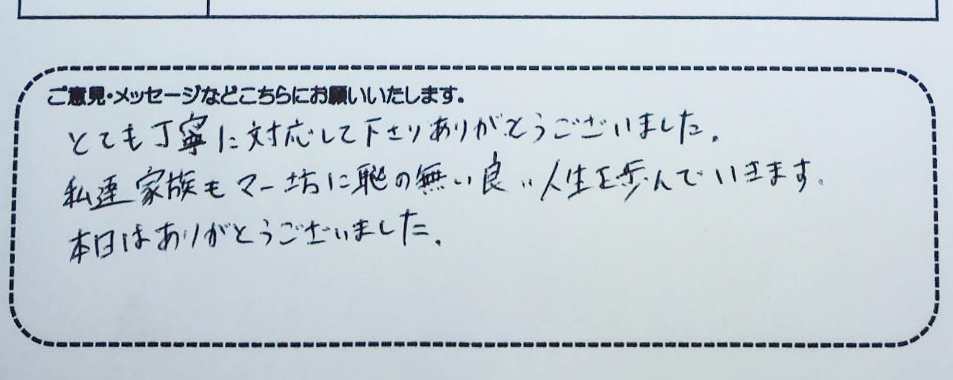 ご意見・メッセージなどこちらにお願いいたします。
とても丁寧に対応して下さりありがとうございました。
私達家族もマー坊に恥の無い良い人生を歩んでいきます。
本日はありがとうございました。